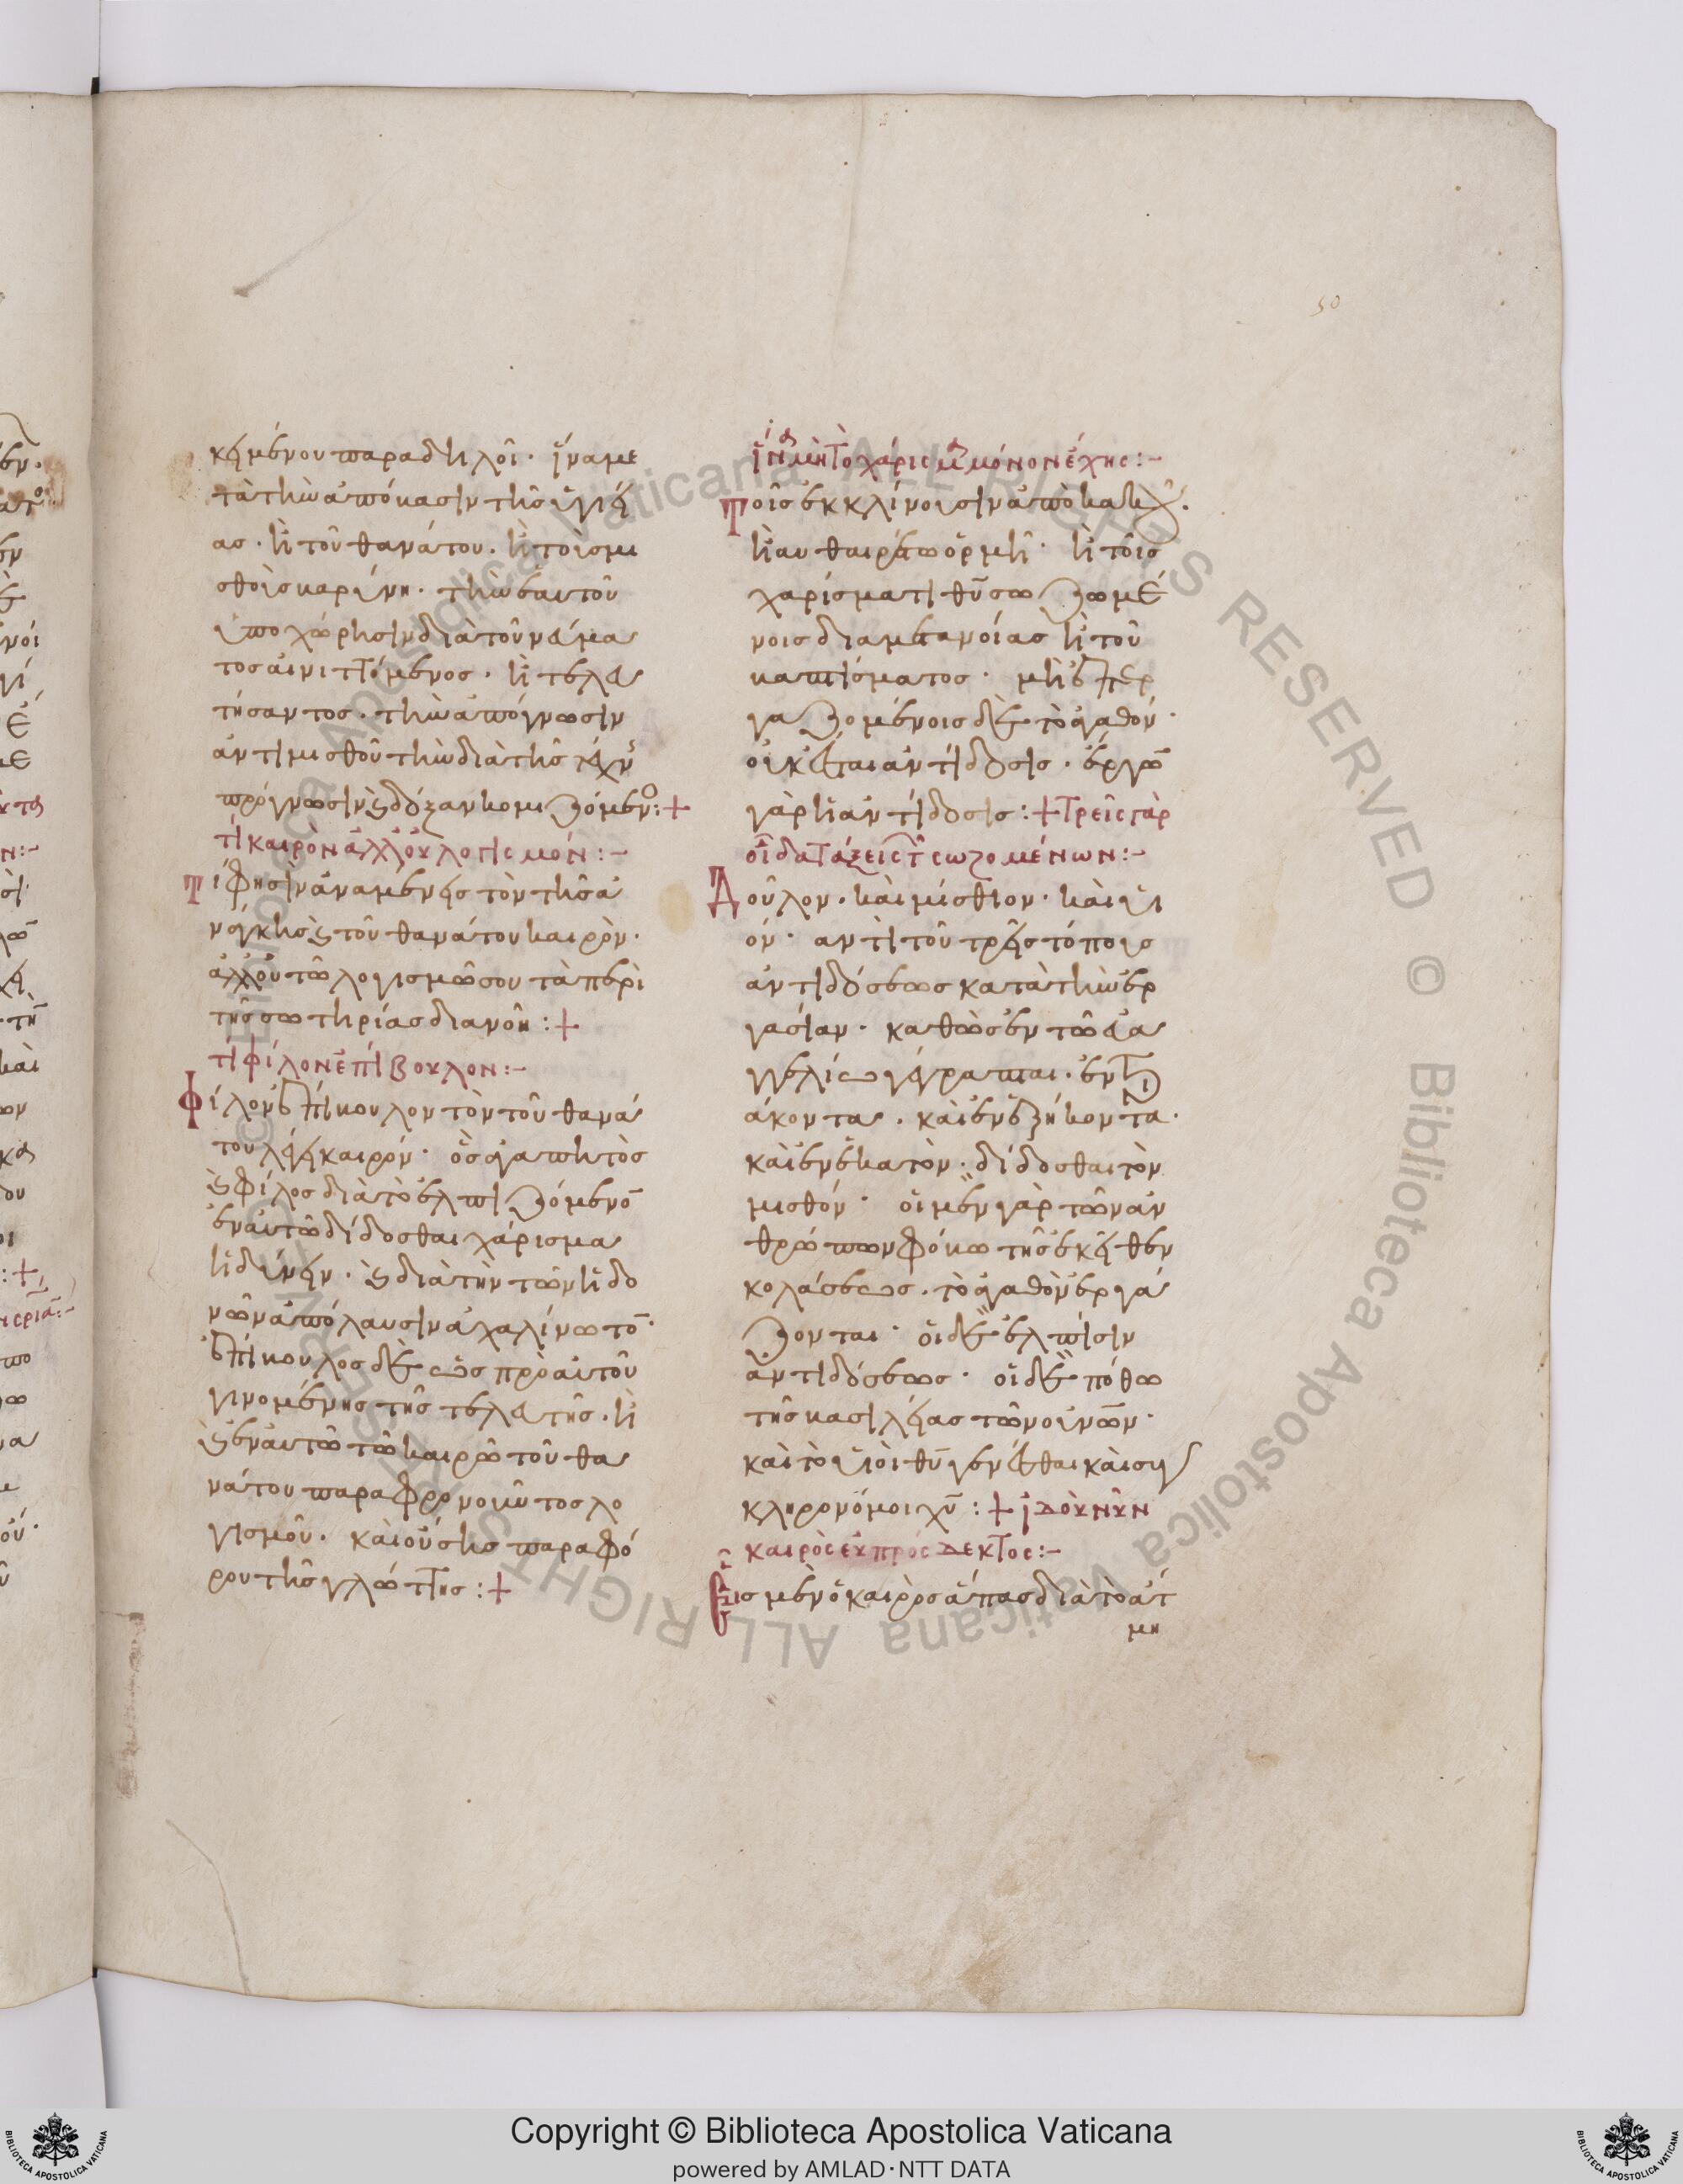 50
κειμένου παραδηλοῖ· ἵνα με
τὰ τὴν ἀπόβασιν τῆς ὑγιεί
ας· ἢ τοῦ θανάτου. ἢ τοῖς μι
σθοῖς βαρύνη· τὴν ἑαυτοῦ
ὑποχώρησιν διὰ τοῦ νεύμα
τος αἰνιττόμενος· ἢ τελευ
τήσαντος· τὴν ἀπόγνωσιν
ἀντὶ μισθοῦ τὴν διὰ τῆς τέχν
πρόγνωσιν ϗ δόξαν κομιζόμενο:+
τί καιρὸν ἀλλ' οὐ λογισμόν:-
Τί φησιν ἀναμένεις τὸν τῆς ἀ
νάγκης ϗ τοῦ θανάτου καιρὸν·
ἀλλ' οὐ τῶ λογισμῶ σου τὰ περὶ
τῆς σωτηρίας διανοῆ:+
τί φίλον ἐπίβουλον:-
Φίλον ἐπίβουλον τὸν τοῦ θανά
του λέγει καιρόν· ὃς ἀγαπητὸς
ϗ φίλος διὰ τὸ ἐλπιζόμενον
ἐν αυτῶ δίδοσθαι χάρισμα
ἡδύνειν· ϗ διὰ τὴν τῶν ἡδο
νῶν ἀπόλαυσιν ἀχαλίνωτον·
ἐπίβουλος δὲ ὡς πρὸ αὐτοῦ
γινομένης τῆς τελευτῆς· ἢ
ϗ ἐν αυτῶ τῶ καιρῶ τοῦ θα
νάτου παραφρονοῦντος λο
γισμοῦ· καὶ οὔσης παραφό
ρου τῆς γλώττης:+
ἵνα μὴ τὸ χάρισμα μόνον ἔχης:-
Τοῖς ἐκκλίνουσιν ἀπὸ κακ
ἢ αυθαιρέτω ὁρμῆ· ἢ τοῖς
χαρίσματι θυ σωζωμέ
νοις διαμετανοίας ἢ τοῦ
βαπτίσματος· μὴ ἐπερ
γαζομένοις δὲ τὸ ἀγαθόν·
οὐκ ἔσται ἀντίδοσις· ἔργων
γὰρ ἡ ἀντίδοσις:+ τρεῖς γὰρ
οἶδα τάξεις τῶν σωζομένων:-
Δοῦλον· καὶ μίσθιον· καὶ υἱ
όν· αντὶ τοῦ τρεῖς τόπους
ἀντιδόσεως κατὰ τὴν ἐρ
γασίαν· καθὼς ἐν τῶ εὐα
γγελίω γέγραπται· ἐν τρι
άκοντα· καὶ ἐν ἑξήκοντα·
καὶ ἐν ἑκατὸν· δίδοσθαι τὸν
μισθόν· οἱ μὲν γὰρ τῶν ἀν
θρώπων φόβω τῆς ἐκεῖθεν
κολάσεως· τὸ ἀγαθὸν ἐργά
ζονται· οἱ δὲ ἐλπίσιν
ἀντιδόσεως· οἱ δὲ πόθω
τῆς βασιλείας τῶν οὐνῶν·
καὶ τοῦ υἱοὶ θυ γενέσθαι καὶ συγ
κληρονόμοι χυ:+ ἰδοὺ νῦν
καιρὸς εὐπρόσδεκτος:-
Εἷς μὲν ὁ καιρὸς ἅπας διὰ τὸ ἄτ
μη